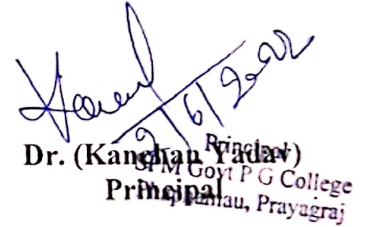 2/6/2022
Dr. (Kanchan Yadav)
Principal
Principal
SPM Govt P G College
Phaphamau, Prayagraj